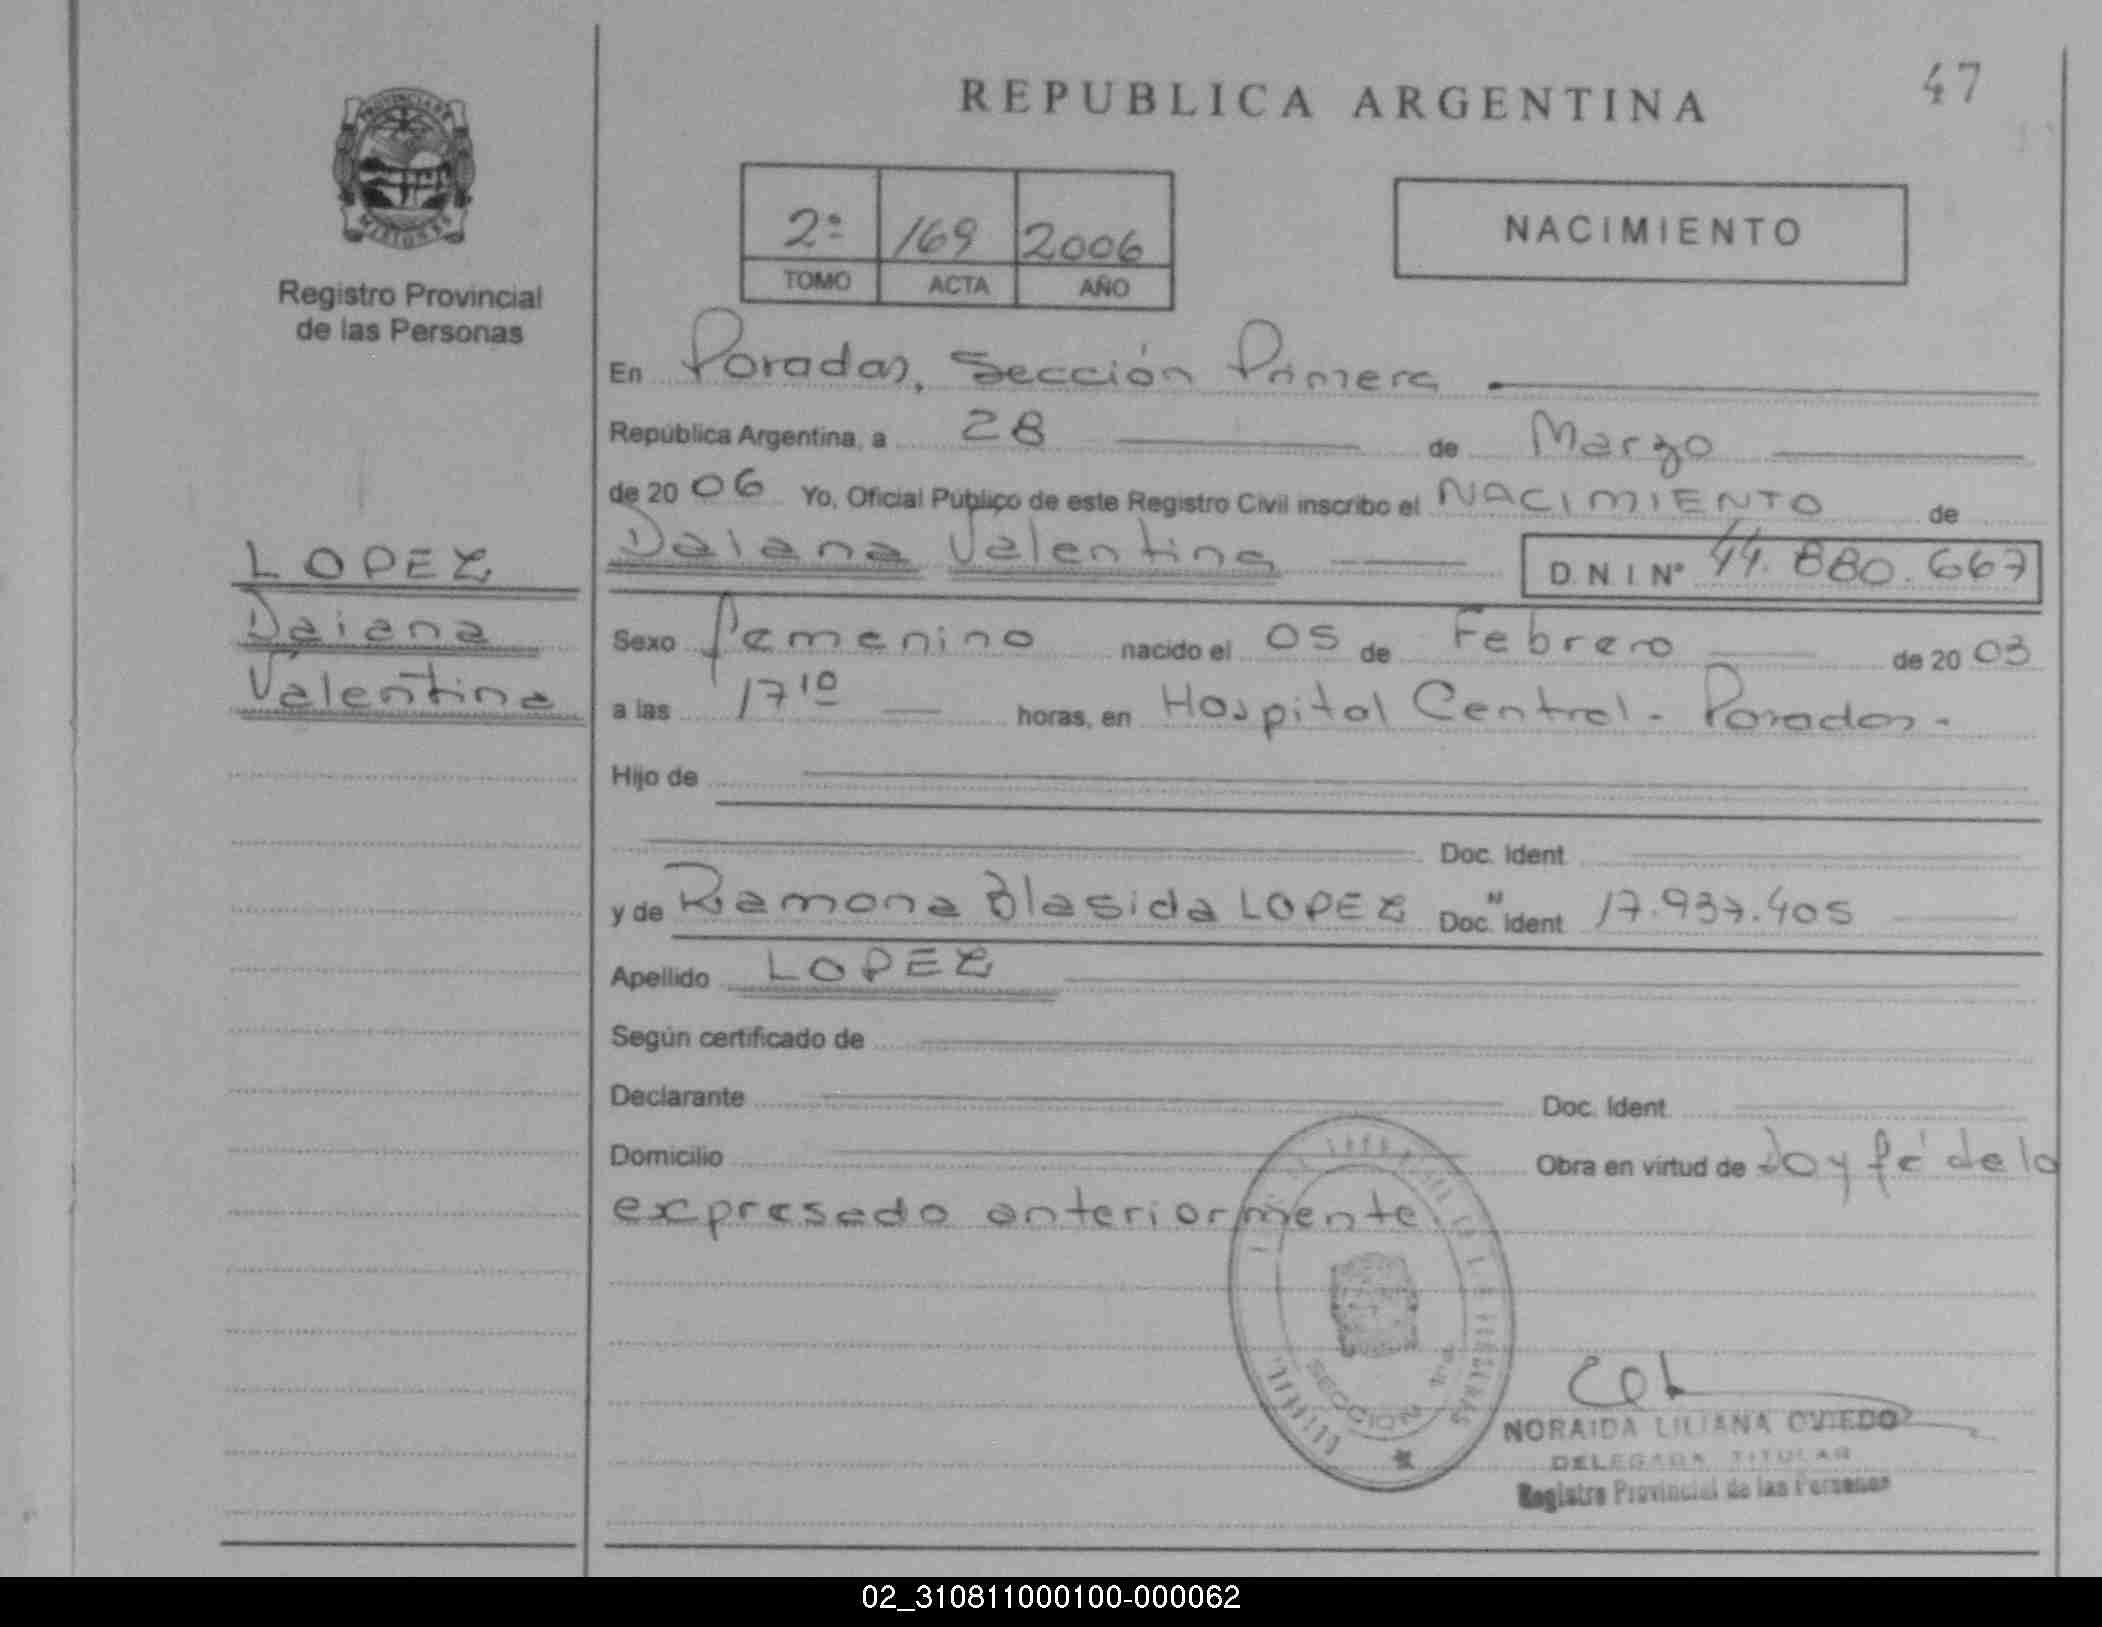 47
REPUBLICA ARGENTINA
PROVINCIA DE
MISIONES
Registro Provincial
de las Personas
2º 169 2006
TOMO ACTA AÑO
NACIMIENTO
En Posadas, Sección Primera
República Argentina, a 28 de Marzo
de 2006 Yo, Oficial Público de este Registro Civil inscribo el NACIMIENTO de
Daiana Valentina DNI Nº 44.880.667
LOPEZ
Daiana
Valentina
Sexo femenino nacido el 05 de Febrero de 2003
a las 17 10 horas, en Hospital Central - Posadas -
Hijo de
Doc. Ident
y de Ramona Blasida LOPEZ Doc. Ident 17.937.405
Apellido LOPEZ
Según certificado de
Declarante Doc. Ident
Domicilio Obra en virtud de Doy fé de lo
expresado anteriormente.
SECCION 1ra
NORAIDA LILIANA OVIEDO
DELEGADA TITULAR
Registro Provincial de las Personas
02_310811000100-000062